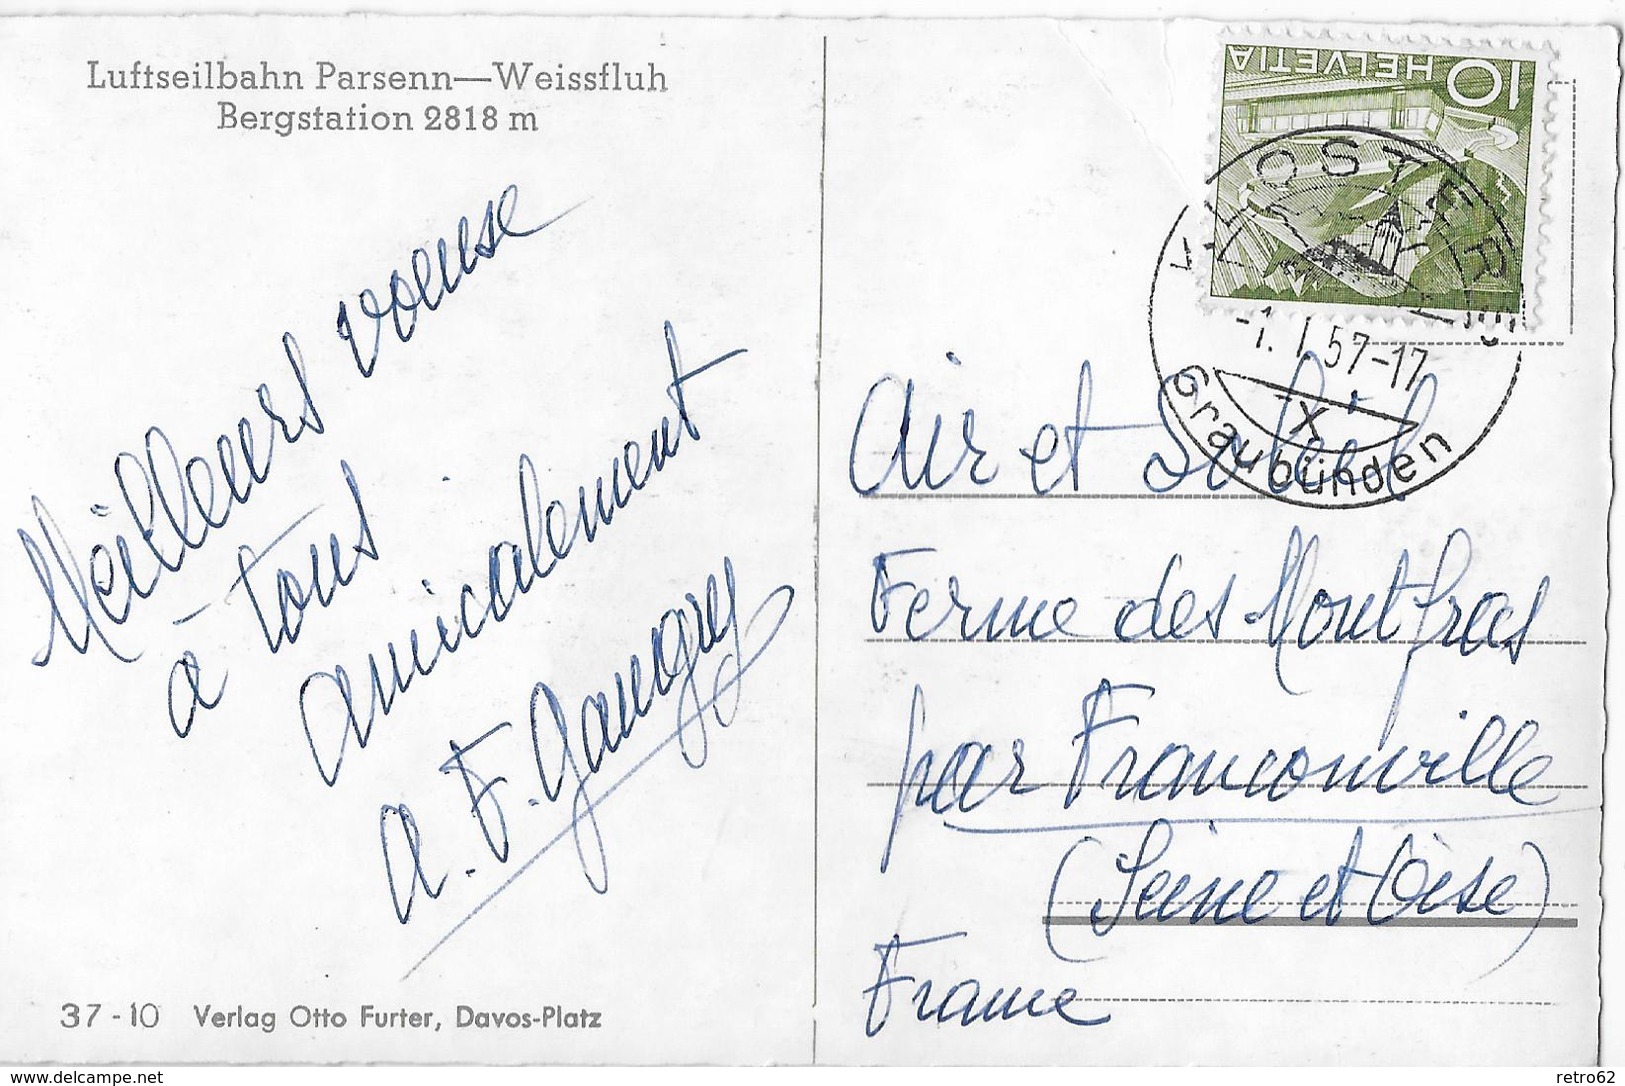 Luftseilbahn Parsenn—Weissfluh
Bergstation 2818 m
Meilleurs voeuse
à tous
amicalement
a. F.
37-10 Verlag Otto Furter, Davos-Platz
HELVETIA 10
KLOSTERS
-1.I.57-17
X
Graubünden
Air et Soleil
Ferme des Montfras
par Franconville
(Seine et Oise)
France
delcampe.net
retro62